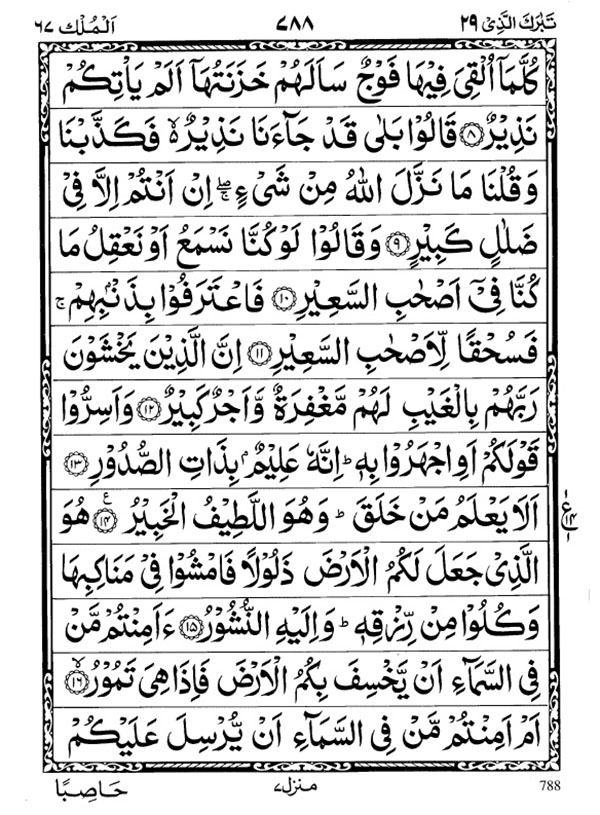 تَبٰرَكَ الَّذِیْ ۲۹ ۷۸۸ اَلْمُلْك ۶۷
كُلَّمَاۤ اُلْقِیَ فِیْهَا فَوْجٌ سَاَلَهُمْ خَزَنَتُهَاۤ اَلَمْ یَاْتِكُمْ
نَذِیْرٌ ۝۸ قَالُوْا بَلٰی قَدْ جَآءَنَا نَذِیْرٌ ۙ۬ فَكَذَّبْنَا
وَ قُلْنَا مَا نَزَّلَ اللّٰهُ مِنْ شَیْءٍ ۖۚ اِنْ اَنْتُمْ اِلَّا فِیْ
ضَلٰلٍ كَبِیْرٍ ۝۹ وَ قَالُوْا لَوْ كُنَّا نَسْمَعُ اَوْ نَعْقِلُ مَا
كُنَّا فِیْۤ اَصْحٰبِ السَّعِیْرِ ۝۱۰ فَاعْتَرَفُوْا بِذَنْۢبِهِمْ ۚ
فَسُحْقًا لِّاَصْحٰبِ السَّعِیْرِ ۝۱۱ اِنَّ الَّذِیْنَ یَخْشَوْنَ
رَبَّهُمْ بِالْغَیْبِ لَهُمْ مَّغْفِرَةٌ وَّ اَجْرٌ كَبِیْرٌ ۝۱۲ وَ اَسِرُّوْا
قَوْلَكُمْ اَوِ اجْهَرُوْا بِهٖ ؕ اِنَّهٗ عَلِیْمٌۢ بِذَاتِ الصُّدُوْرِ ۝۱۳
اَلَا یَعْلَمُ مَنْ خَلَقَ ؕ وَ هُوَ اللَّطِیْفُ الْخَبِیْرُ ۝۱۴ ع هُوَ
الَّذِیْ جَعَلَ لَكُمُ الْاَرْضَ ذَلُوْلًا فَامْشُوْا فِیْ مَنَاكِبِهَا
وَ كُلُوْا مِنْ رِّزْقِهٖ ؕ وَ اِلَیْهِ النُّشُوْرُ ۝۱۵ ءَاَمِنْتُمْ مَّنْ
فِی السَّمَآءِ اَنْ یَّخْسِفَ بِكُمُ الْاَرْضَ فَاِذَا هِیَ تَمُوْرُ ۙ۝۱۶
اَمْ اَمِنْتُمْ مَّنْ فِی السَّمَآءِ اَنْ یُّرْسِلَ عَلَیْكُمْ
788 منزل ۷ حَاصِبًا